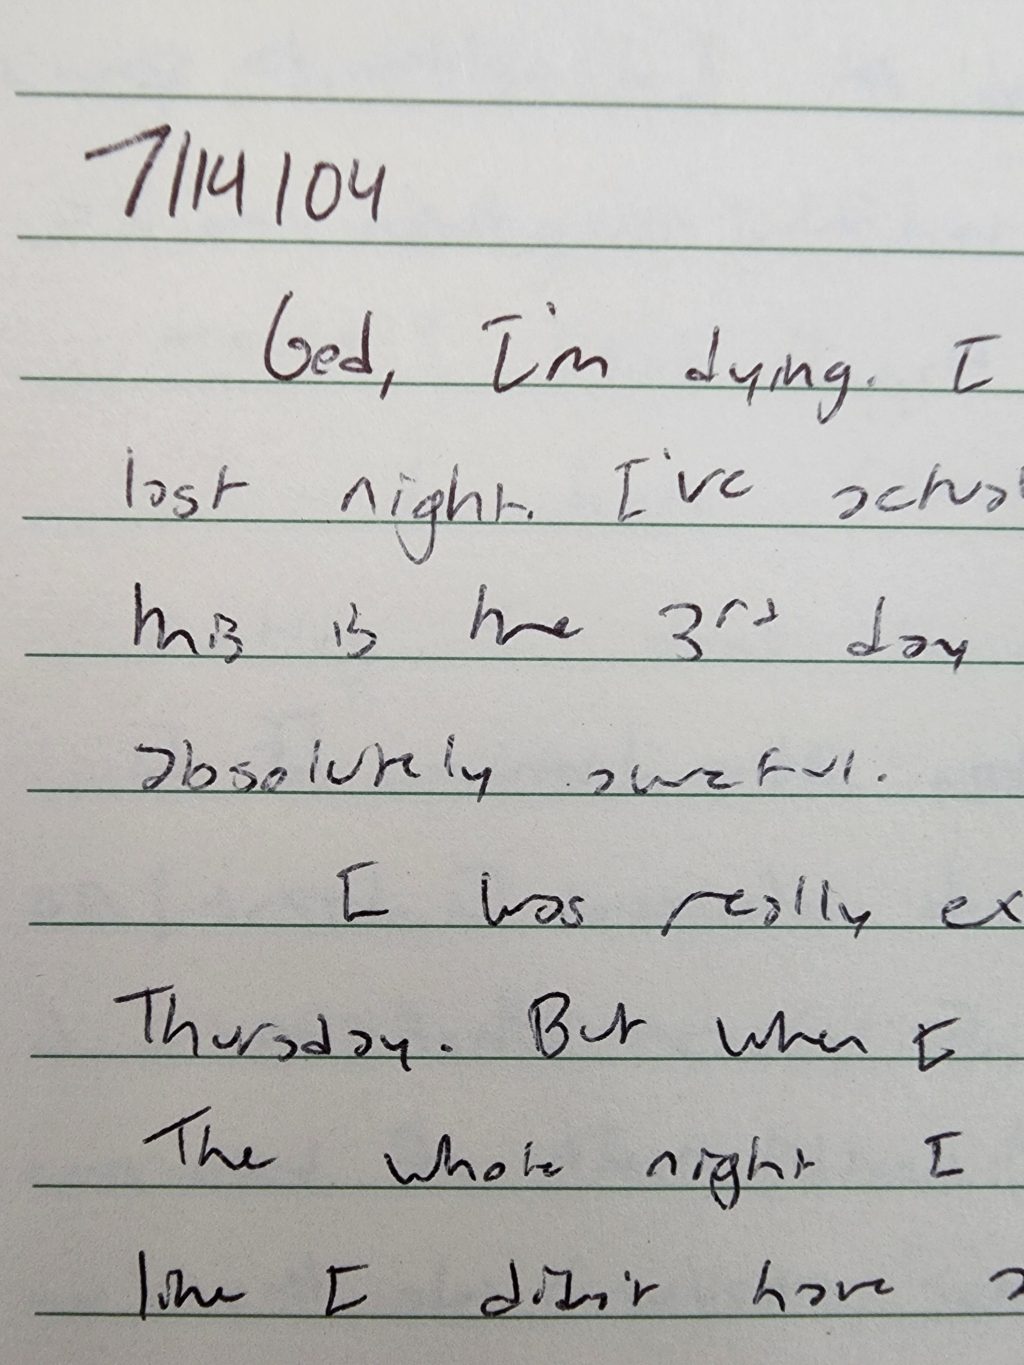 7/14/04
God, I'm dying. I
last night. I've actual
this is the 3rd day
absolutely aweful.
I was really ex
Thursday. But when I
The whole night I
like I didn't have a